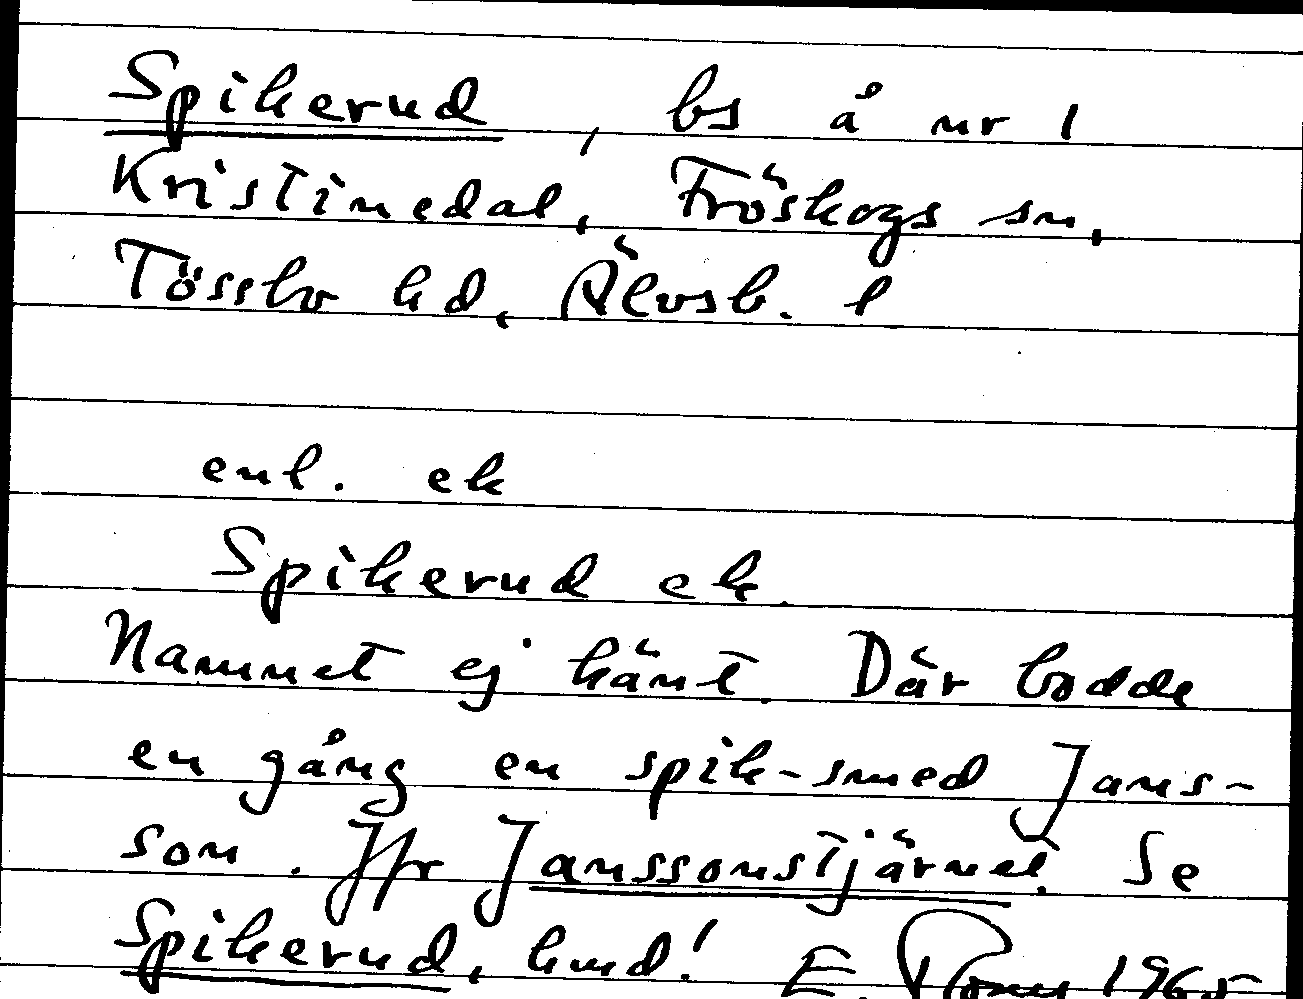 Spikerud, bs å nr 1
Kristinedal, Fröskogs sn,
Tössbo hd, Älvsb. l
enl. ek
Spikerud ek.
Namnet ej känt. Där bodde
en gång en spik-smed Jans-
son. Jfr Janssonstjärnet. Se
Spikerud, hmd! E. 1965